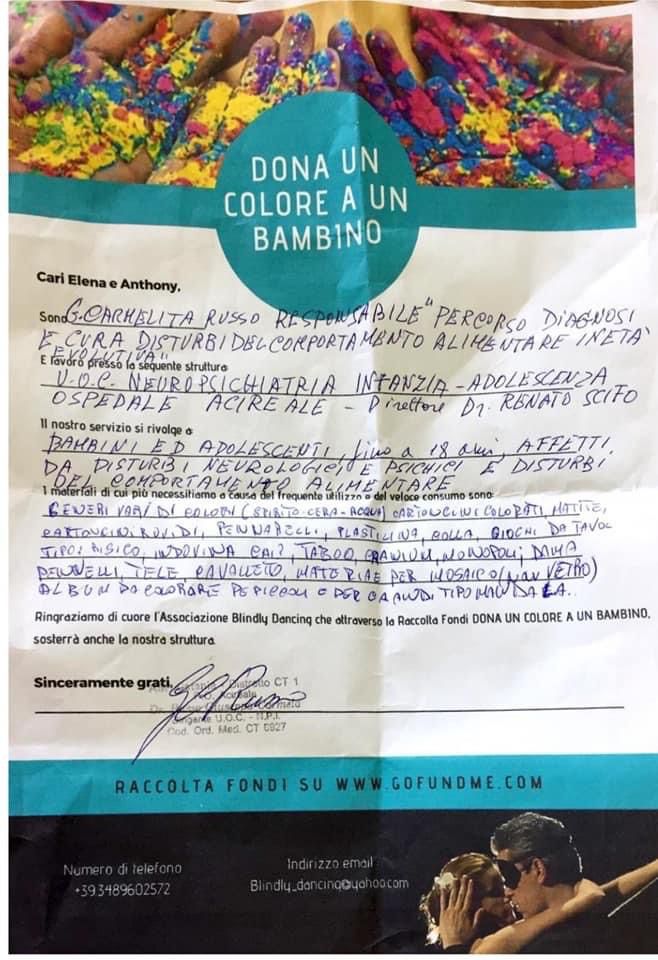 DONA UN
COLORE A UN
BAMBINO
Cari Elena e Anthony,
Sono G. CARMELITA RUSSO RESPONSABILE "PERCORSO DIAGNOSI
E CURA DISTURBI DEL COMPORTAMENTO ALIMENTARE IN ETA'
EVOLUTIVA"
E lavoro presso la seguente struttura
U.O.C. NEUROPSICHIATRIA INFANZIA - ADOLESCENZA
OSPEDALE ACIREALE - Direttore Dr. RENATO SCIFO
Il nostro servizio si rivolge a
BAMBINI ED ADOLESCENTI, fino a 18 anni, AFFETTI
DA DISTURBI NEUROLOGICI E PSICHICI E DISTURBI
DEL COMPORTAMENTO ALIMENTARE
I materiali di cui più necessitiamo a causa del frequente utilizzo o del veloce consumo sono:
GENERI VARI DI COLORI (SPIRITO-CERA-ACQUA) CARTONCINI COLORATI, MATITE,
CARTONCINI RUVIDI, PENNARELLI, PLASTILINA, COLLA, GIOCHI DA TAVOL
TIPO: RISICO, INDOVINA CHI?, TABOO, CRANIUM, MONOPOLI, DAMA
PENNELLI, TELE CAVALLETTO, MATERIAE PER MOSAICO (NON VETRO)
ALBUM DA COLORARE PE PICCOLI E PER GRANDI TIPO MANDALA..
Ringraziamo di cuore l'Associazione Blindly Dancing che attraverso la Raccolta Fondi DONA UN COLORE A UN BAMBINO,
sosterrà anche la nostra struttura.
Sinceramente grati,
Distretto CT 1
Acireale
Dirigente U.O.C. - N.P.I.
Cod. Ord. Med. CT 6927
RACCOLTA FONDI SU WWW.GOFUNDME.COM
Numero di telefono
+39 3489602572
Indirizzo email
Blindly_dancing@yahoo.com